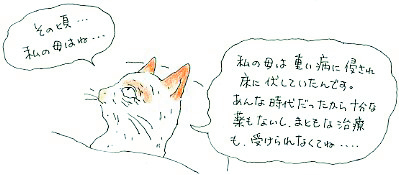 その頃・・・
私の母はね・・・
私の母は重い病に侵され
床に伏していたんです。
あんな時代だったから十分な
薬もないし、まともな治療
も、受けられなくてね・・・・